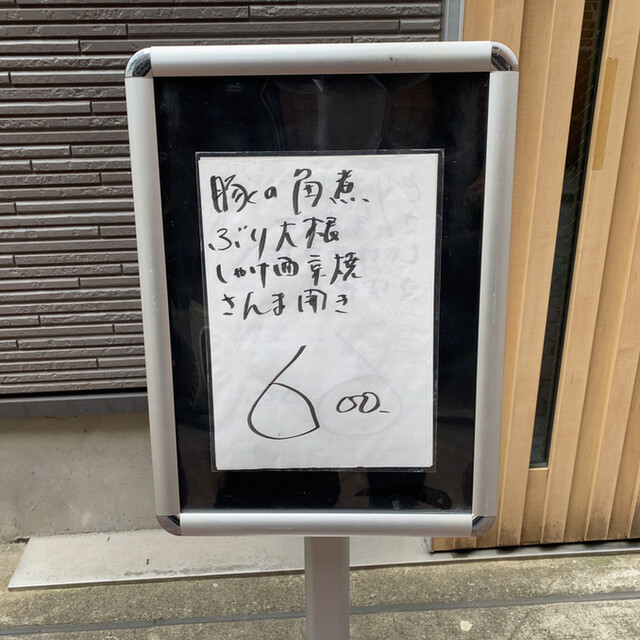 豚の角煮
ぶり大根
しゃけ西京焼
さんま開き
600-